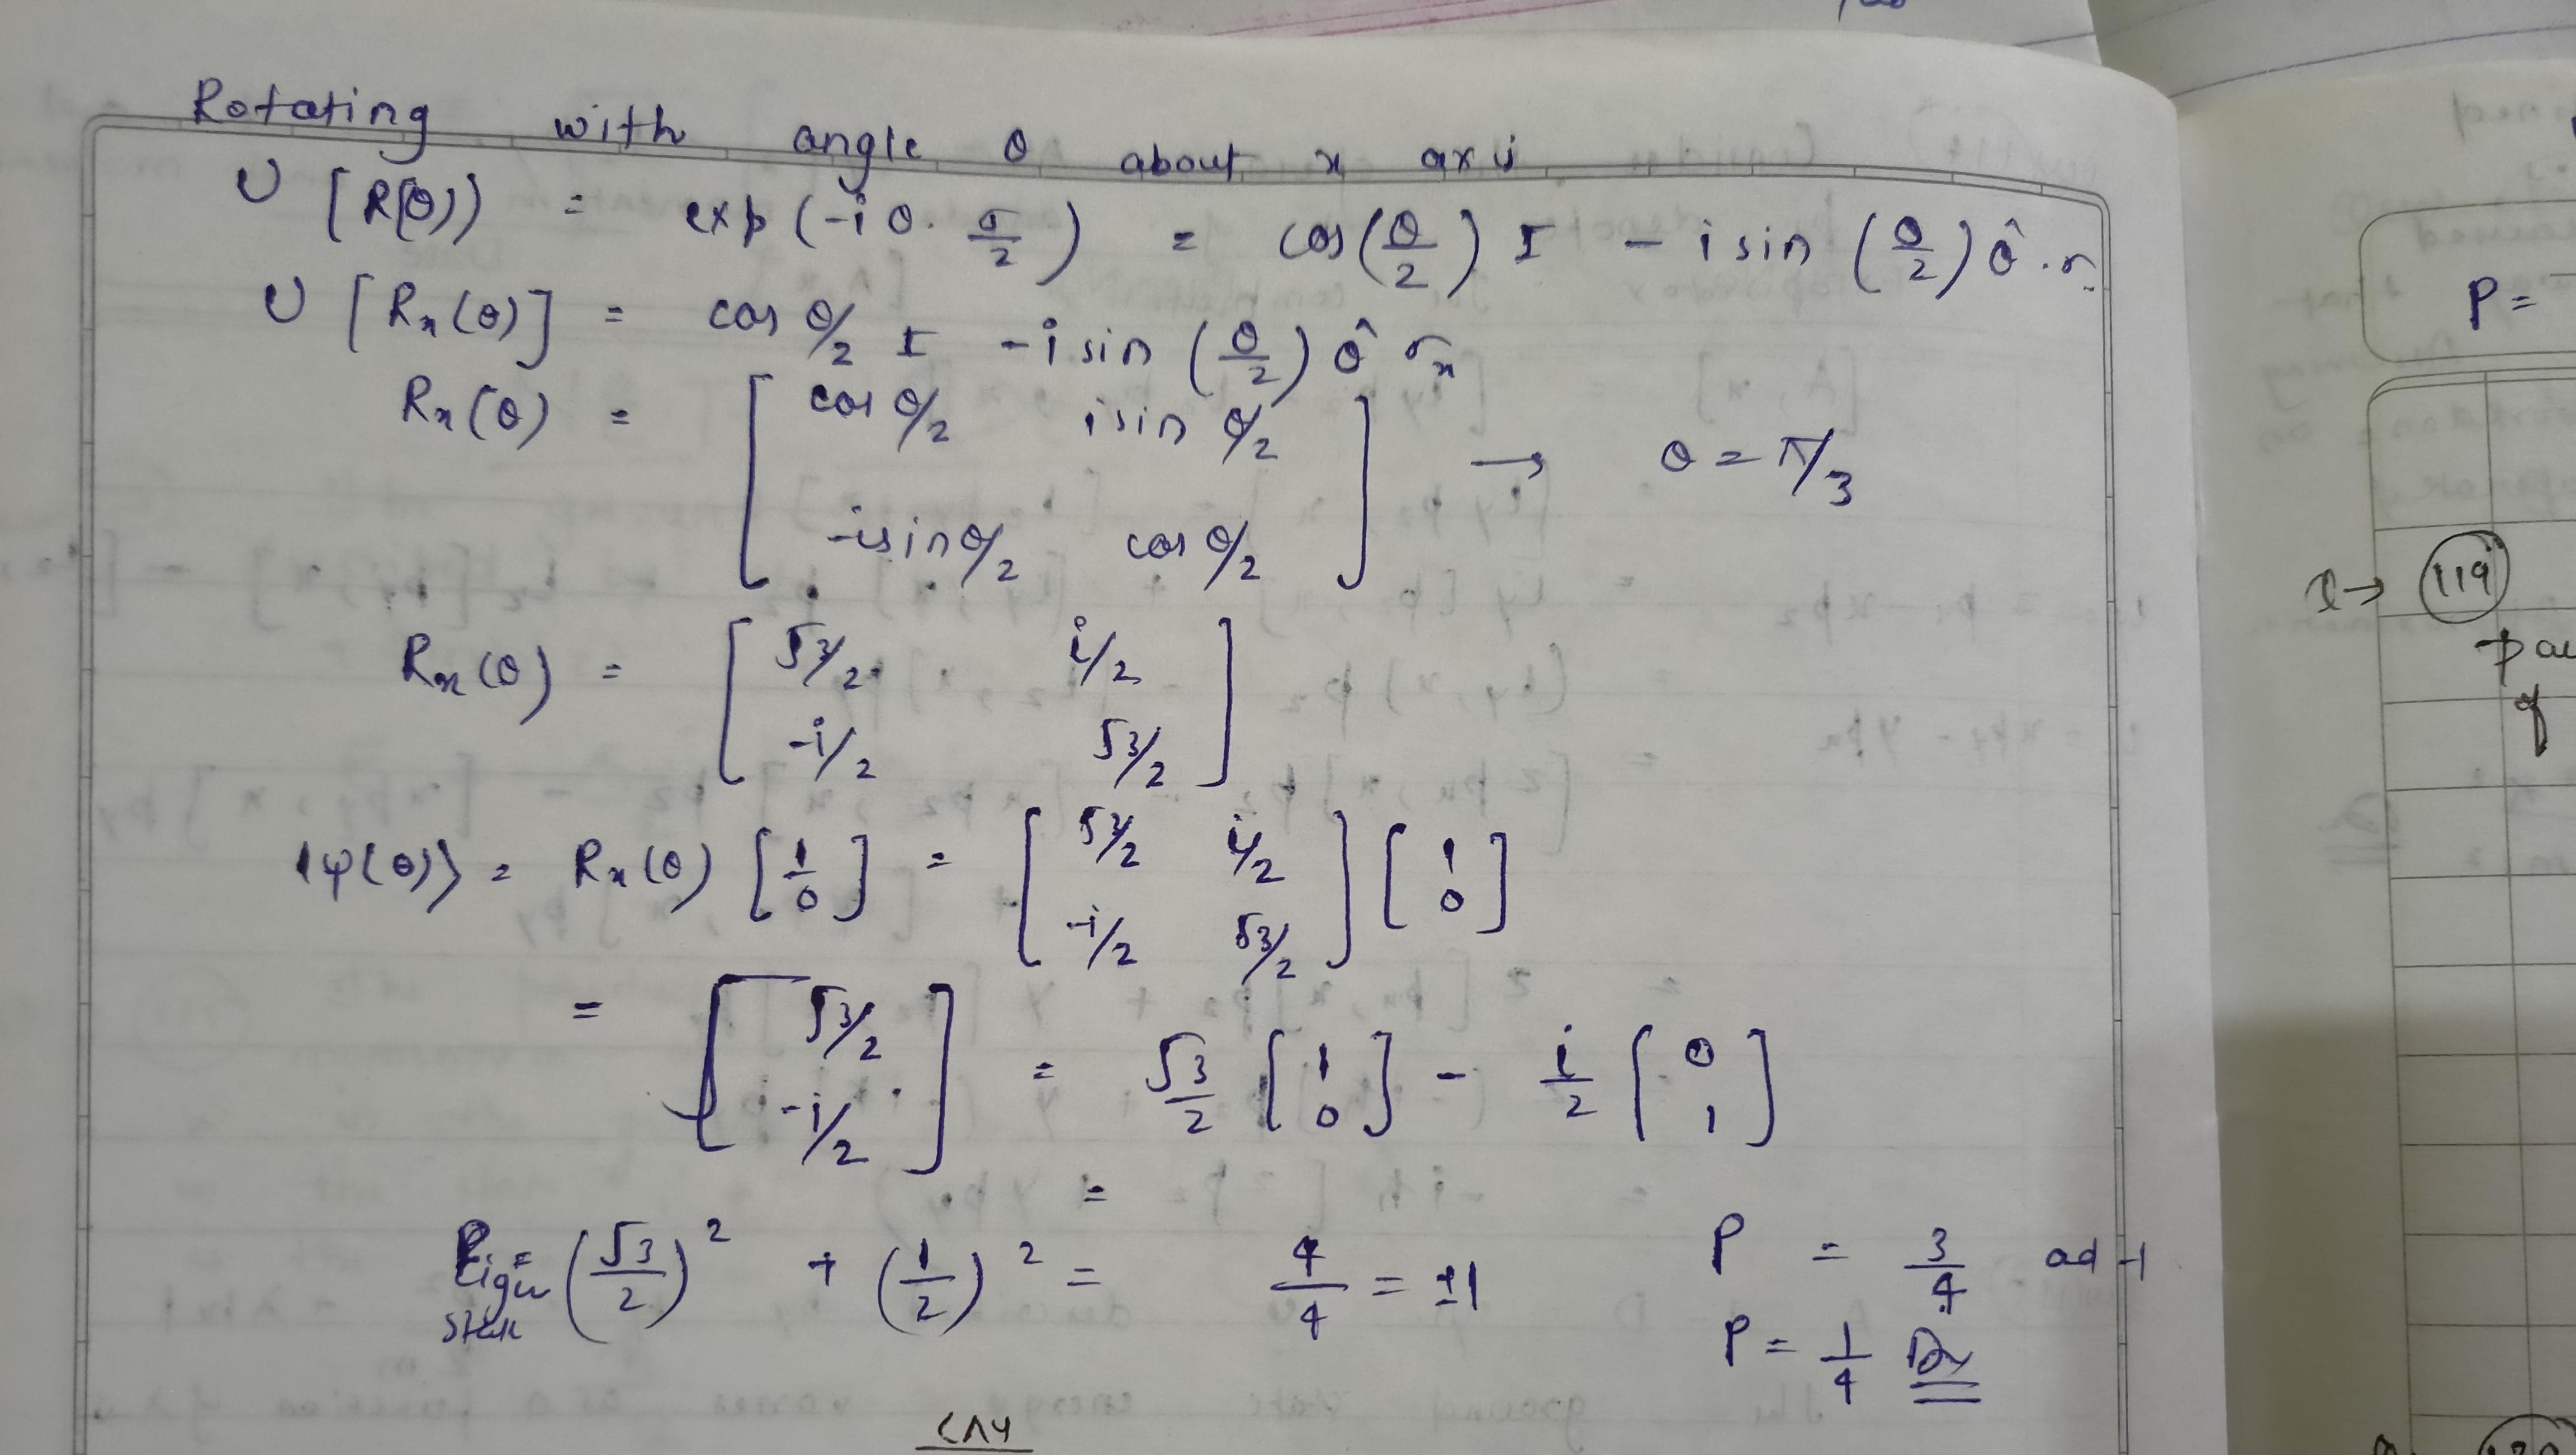 Rotating with angle θ about x axis
U [R(θ)) = exp (-iθ. σ/2) = cos(θ/2) I - i sin (θ/2) θ̂ . σ
U [Rx(θ)] = cos θ/2 I - i sin (θ/2) θ̂ σx
Rx(θ) = [ cos θ/2 i sin θ/2
-i sin θ/2 cos θ/2 ] → θ = π/3
Rx(θ) = [ √3/2 i/2
-i/2 √3/2 ]
|ψ(θ)⟩ = Rx(θ) [ 1 0 ] = [ √3/2 i/2
-i/2 √3/2 ] [ 1 0 ]
= [ √3/2 -i/2 ] = √3/2 [ 1 0 ] - i/2 [ 0 1 ]
=
(√3/2)² + (1/2)² = 4/4 = ±1
P = 3/4
P = 1/4
P =
119
of